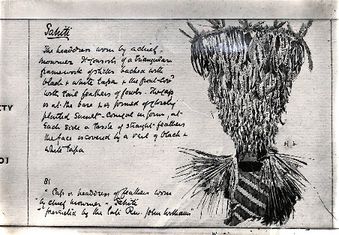 Tahiti
The headdress worn by a chief
mourner. It consists of a triangular
framework of sticks backed with
black & white tapa & the front
with tail feathers of fowls. The cap
is at the base & is formed of
plaited sinnet - conical in form, at
each side a tassle of straight feathers
the face is covered by a veil of black &
white tapa
"Cap or headdress of feathers worn
by chief mourner - Tahiti
presented by the late Rev. John Williams"
TY